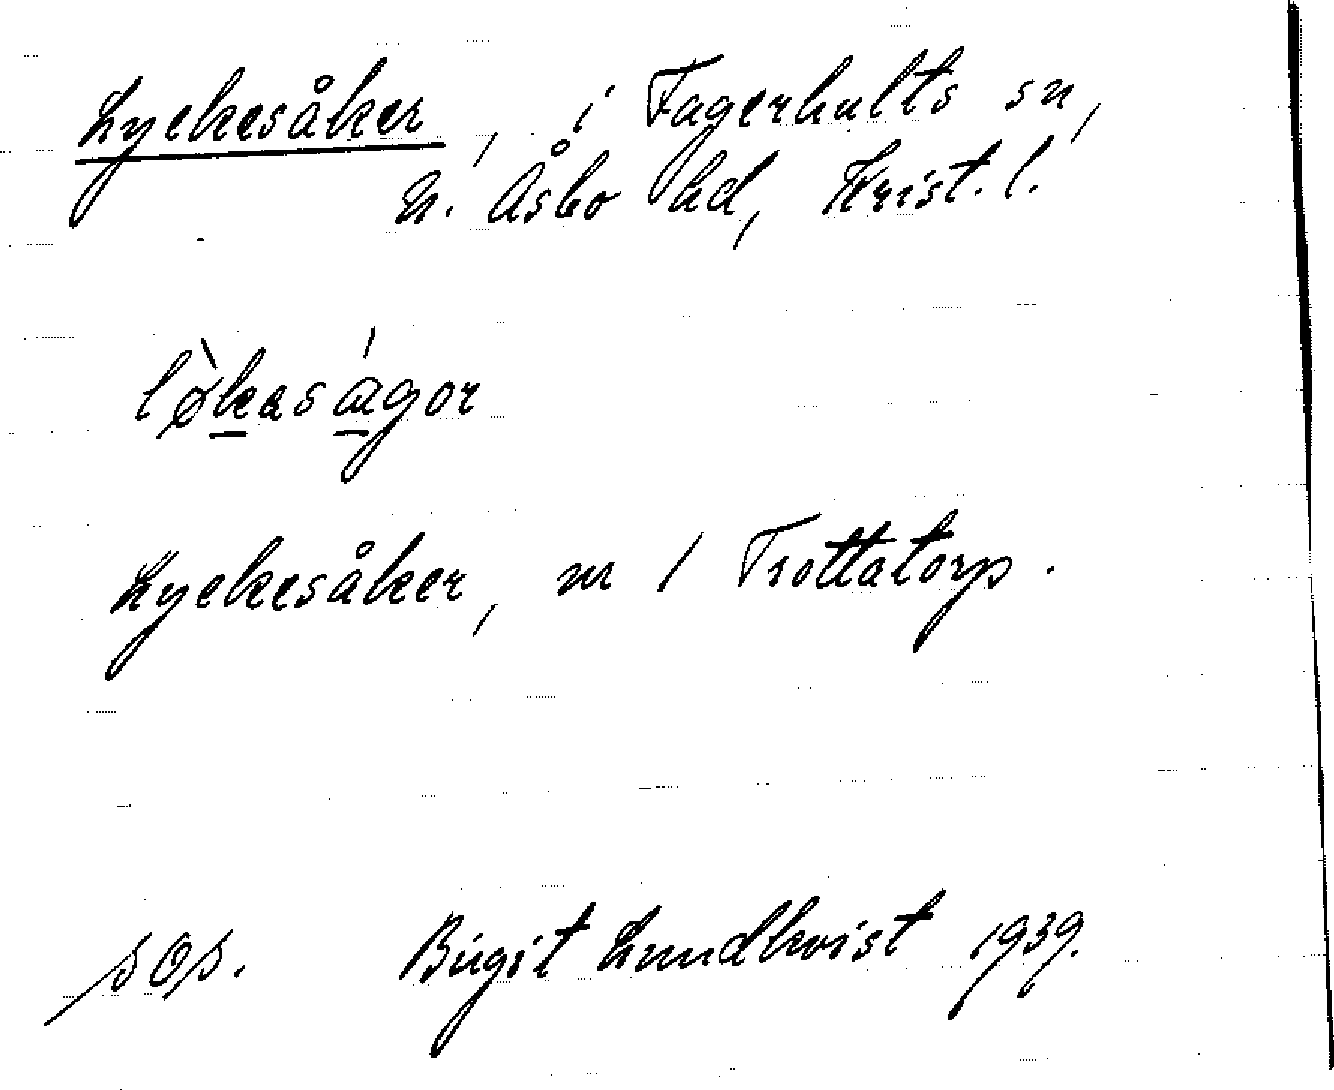 Lyckesåker, i Fagerhults sn,
N. Åsbo hd, Krist. l.
lø̀kaságor
Lyckesåker, nr 1 Trottatorp.
Birgit Lundkvist 1939.